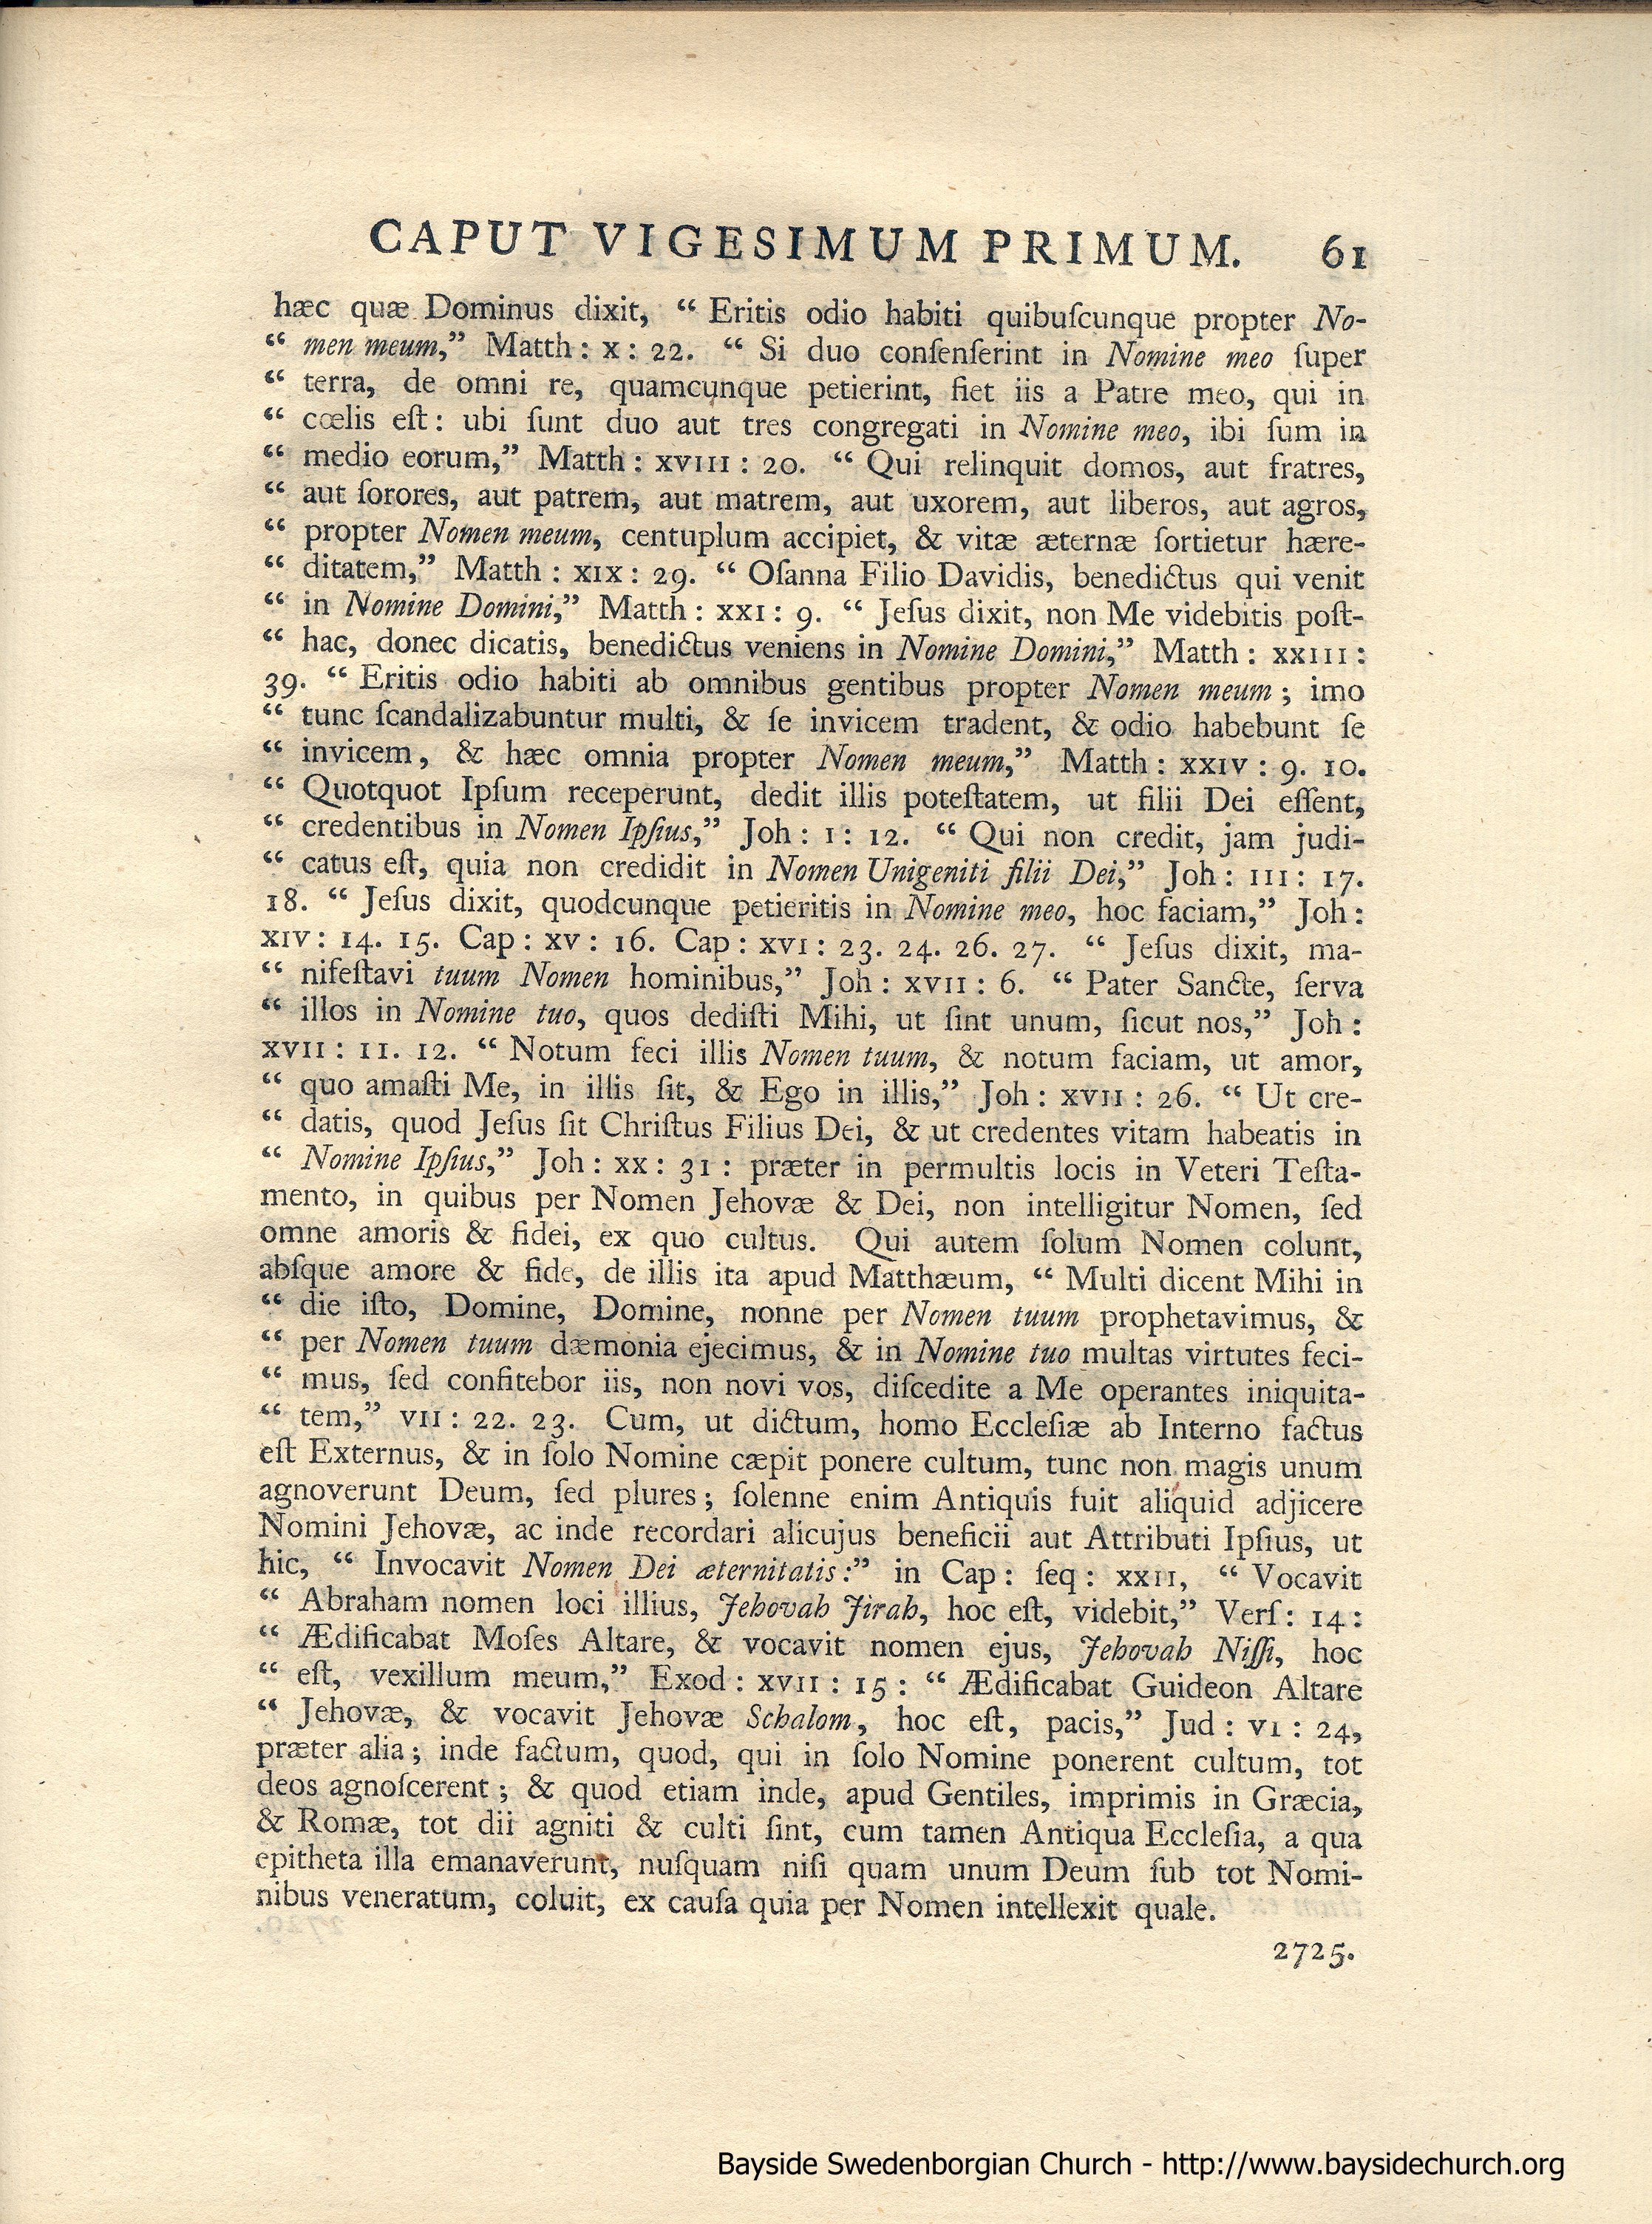 CAPUT VIGESIMUM PRIMUM. 61
hæc quæ Dominus dixit, “ Eritis odio habiti quibuſcunque propter No-
“ men meum,” Matth : x : 22. “ Si duo conſenſerint in Nomine meo ſuper
“ terra, de omni re, quamcunque petierint, fiet iis a Patre meo, qui in
“ cœlis eſt : ubi ſunt duo aut tres congregati in Nomine meo, ibi ſum in
“ medio eorum,” Matth : xviii : 20. “ Qui relinquit domos, aut fratres,
“ aut ſorores, aut patrem, aut matrem, aut uxorem, aut liberos, aut agros,
“ propter Nomen meum, centuplum accipiet, & vitæ æternæ ſortietur hære-
“ ditatem,” Matth : xix : 29. “ Oſanna Filio Davidis, benedictus qui venit
“ in Nomine Domini,” Matth : xxi : 9. “ Jeſus dixit, non Me videbitis poſt-
“ hac, donec dicatis, benedictus veniens in Nomine Domini,” Matth : xxiii :
39. “ Eritis odio habiti ab omnibus gentibus propter Nomen meum ; imo
“ tunc ſcandalizabuntur multi, & ſe invicem tradent, & odio habebunt ſe
“ invicem, & hæc omnia propter Nomen meum,” Matth : xxiv : 9. 10.
“ Quotquot Ipſum receperunt, dedit illis poteſtatem, ut filii Dei eſſent,
“ credentibus in Nomen Ipſius,” Joh : i : 12. “ Qui non credit, jam judi-
“ catus eſt, quia non credidit in Nomen Unigeniti filii Dei,” Joh : iii : 17.
18. “ Jeſus dixit, quodcunque petieritis in Nomine meo, hoc faciam,” Joh :
xiv : 14. 15. Cap : xv : 16. Cap : xvi : 23. 24. 26. 27. “ Jeſus dixit, ma-
“ nifeſtavi tuum Nomen hominibus,” Joh : xvii : 6. “ Pater Sancte, ſerva
“ illos in Nomine tuo, quos dediſti Mihi, ut ſint unum, ſicut nos,” Joh :
xvii : 11. 12. “ Notum feci illis Nomen tuum, & notum faciam, ut amor,
“ quo amaſti Me, in illis ſit, & Ego in illis,” Joh : xvii : 26. “ Ut cre-
“ datis, quod Jeſus ſit Chriſtus Filius Dei, & ut credentes vitam habeatis in
“ Nomine Ipſius,” Joh : xx : 31 : præter in permultis locis in Veteri Teſta-
mento, in quibus per Nomen Jehovæ & Dei, non intelligitur Nomen, ſed
omne amoris & fidei, ex quo cultus. Qui autem ſolum Nomen colunt,
abſque amore & fide, de illis ita apud Matthæum, “ Multi dicent Mihi in
“ die iſto, Domine, Domine, nonne per Nomen tuum prophetavimus, &
“ per Nomen tuum dæmonia ejecimus, & in Nomine tuo multas virtutes feci-
“ mus, ſed confitebor iis, non novi vos, diſcedite a Me operantes iniquita-
“ tem,” vii : 22. 23. Cum, ut dictum, homo Eccleſiæ ab Interno factus
eſt Externus, & in ſolo Nomine cæpit ponere cultum, tunc non magis unum
agnoverunt Deum, ſed plures ; ſolenne enim Antiquis fuit aliquid adjicere
Nomini Jehovæ, ac inde recordari alicujus beneficii aut Attributi Ipſius, ut
hic, “ Invocavit Nomen Dei æternitatis :” in Cap : ſeq : xxii, “ Vocavit
“ Abraham nomen loci illius, Jehovah Jirah, hoc eſt, videbit,” Verſ : 14 :
“ Ædificabat Moſes Altare, & vocavit nomen ejus, Jehovah Niſſi, hoc
“ eſt, vexillum meum,” Exod : xvii : 15 : “ Ædificabat Guideon Altare
“ Jehovæ, & vocavit Jehovæ Schalom, hoc eſt, pacis,” Jud : vi : 24,
præter alia ; inde factum, quod, qui in ſolo Nomine ponerent cultum, tot
deos agnoſcerent ; & quod etiam inde, apud Gentiles, imprimis in Græcia,
& Romæ, tot dii agniti & culti ſint, cum tamen Antiqua Eccleſia, a qua
epitheta illa emanaverunt, nuſquam niſi quam unum Deum ſub tot Nomi-
nibus veneratum, coluit, ex cauſa quia per Nomen intellexit quale.
2725.
Bayside Swedenborgian Church - http://www.baysidechurch.org